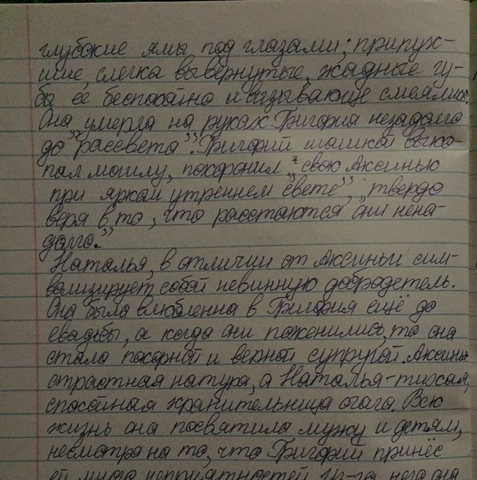 глубокие ямы под глазами; припух-
шие, слегка вывернутые, жадные гу-
бы её беспокойно и вызывающе смеялись.
Она „умерла на руках Григория незадолго
до рассвета". Григорий шашкой выко-
пал могилу, похоронил „свою Аксинью
при ярком утреннем свете", „твердо
веря в то, что расстаются они нена-
долго."
Наталья, в отличии от Аксиньи сим-
волизирует собой невинную добродетель.
Она была влюбленна в Григория ещё до
свадьбы, а когда они поженились, то она
стала покорной и верной супругой. Аксинья
страстная натура, а Наталья-тихая,
спокойная хранительница очага. Всю
жизнь она посвятила мужу и детям,
несмотря на то, что Григорий принёс
ей много неприятностей. Из-за него она